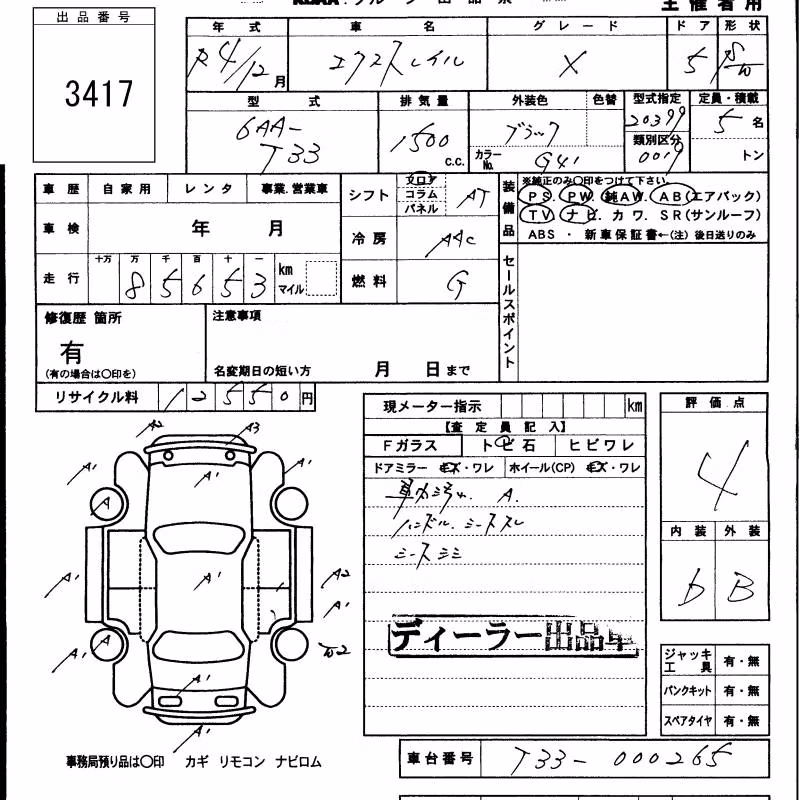 主催者用
出品番号
3417
年式 車名 グレード ドア 形状
R4/12月 エクストレイル X 5 S/W
型式 排気量 外装色 色替 型式指定 定員・積載
6AA-T33 1500 c.c. ブラック 20399 5名
カラーNo. G41 類別区分 0019 トン
車歴 自家用 レンタ 事業.営業車
シフト フロア コラム パネル AT
装備品 ※純正のみ〇印をつけて下さい。
PS. PW. 純AW. AB(エアバック)
TV ナビ. カワ. SR(サンルーフ)
ABS ・ 新車保証書←(注) 後日送りのみ
車検 年 月
冷房 AAC
走行 十万 万 千 百 十 一
85653 km マイル
燃料 G
セールスポイント
修復歴 箇所
有
(有の場合は〇印を)
注意事項
名変期日の短い方 月 日まで
リサイクル料 12550円
現メーター指示 km
評価点
4
【査定員記入】
Fガラス トビ石 ヒビワレ
ドアミラー キズ・ワレ ホイール(CP) キズ・ワレ
A.
ハンドル. シースレ
内装 外装
b B
ディーラー出品車
A2 A3
A' A' A'
A
A' A' A2
A'
A A' A'
A' A'
ジャッキ工具 有・無
パンクキット 有・無
スペアタイヤ 有・無
事務局預り品は〇印 カギ リモコン ナビロム
車台番号 T33-000265